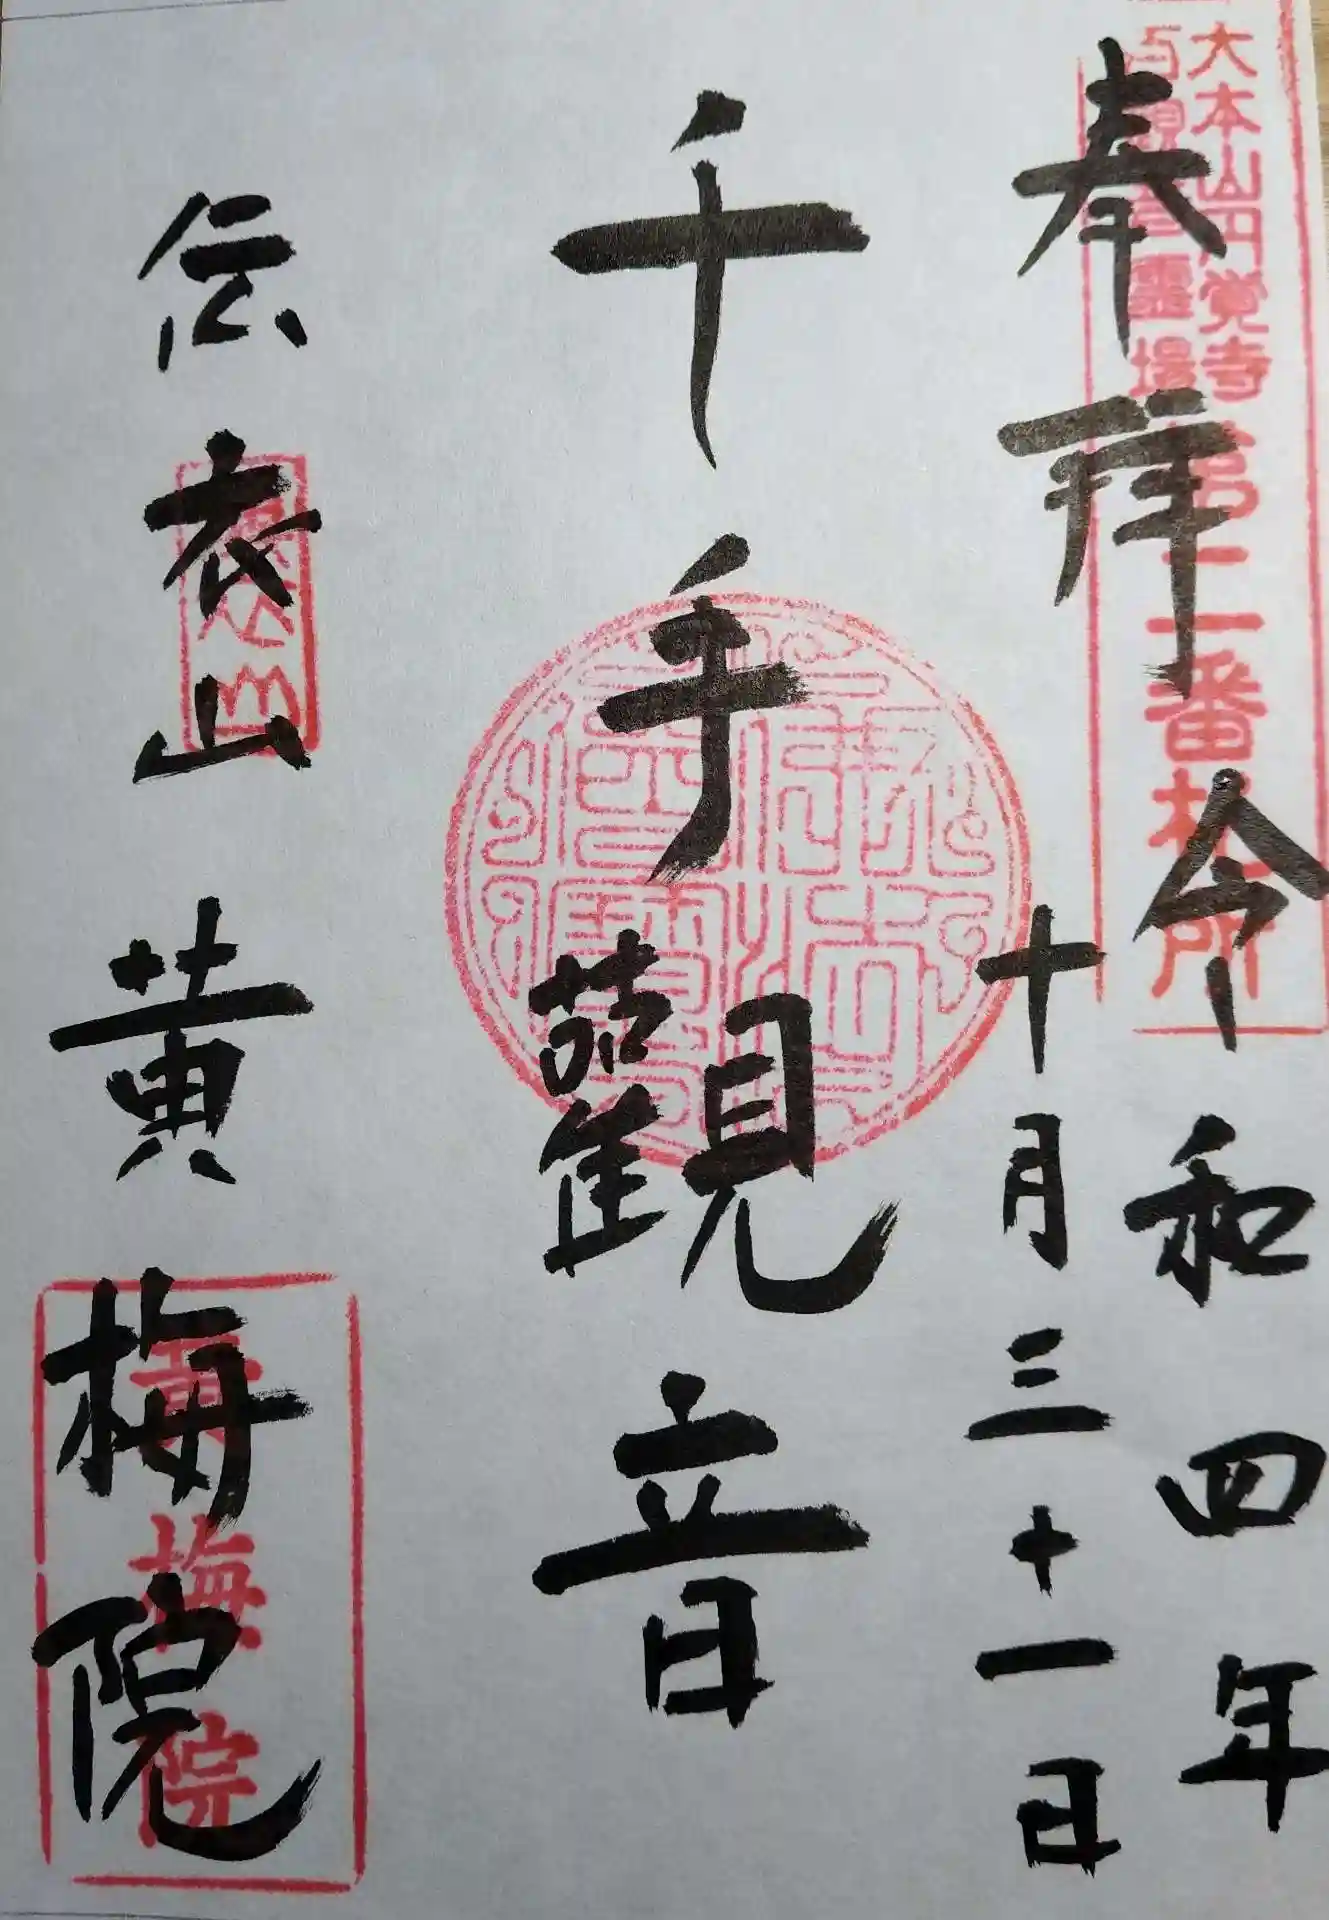 奉拝
大本山円覚寺
百観音霊場第二番札所
令和四年
十月三十一日
千手觀音
佛法僧寶
伝衣山
黄梅院
黄梅院